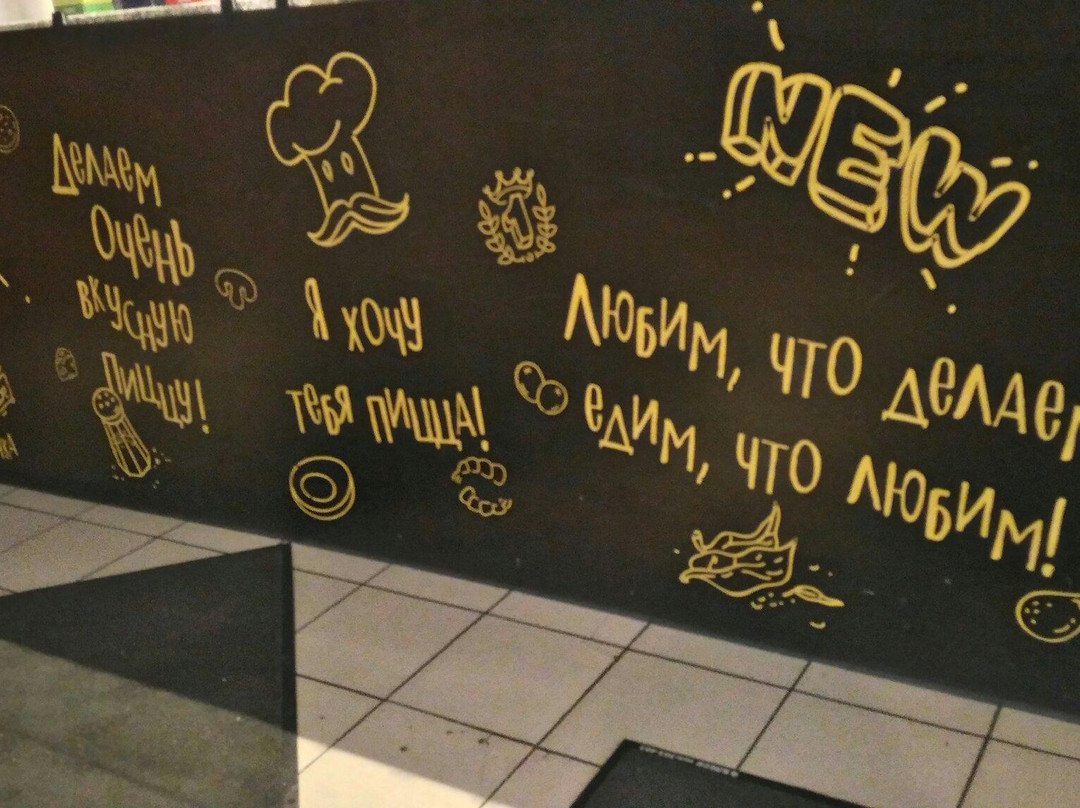 Делаем
очень
вкусную
пиццу!
Я хочу
тебя пицца!
1
NEW
Любим, что делаем
едим, что любим!